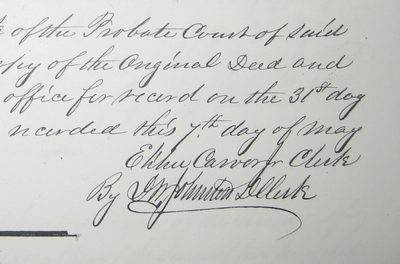 of the Probate Court of said
opy of the Original Deed and
office for record on the 31st day
recorded this 7th day of May
Elihu Carver Clerk
By J W Johnston D Clerk